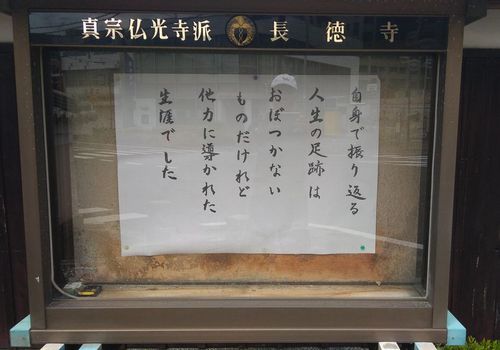 真宗仏光寺派 長徳寺
自身で振り返る
人生の足跡は
おぼつかない
ものだけれど
他力に導かれた
生涯でした